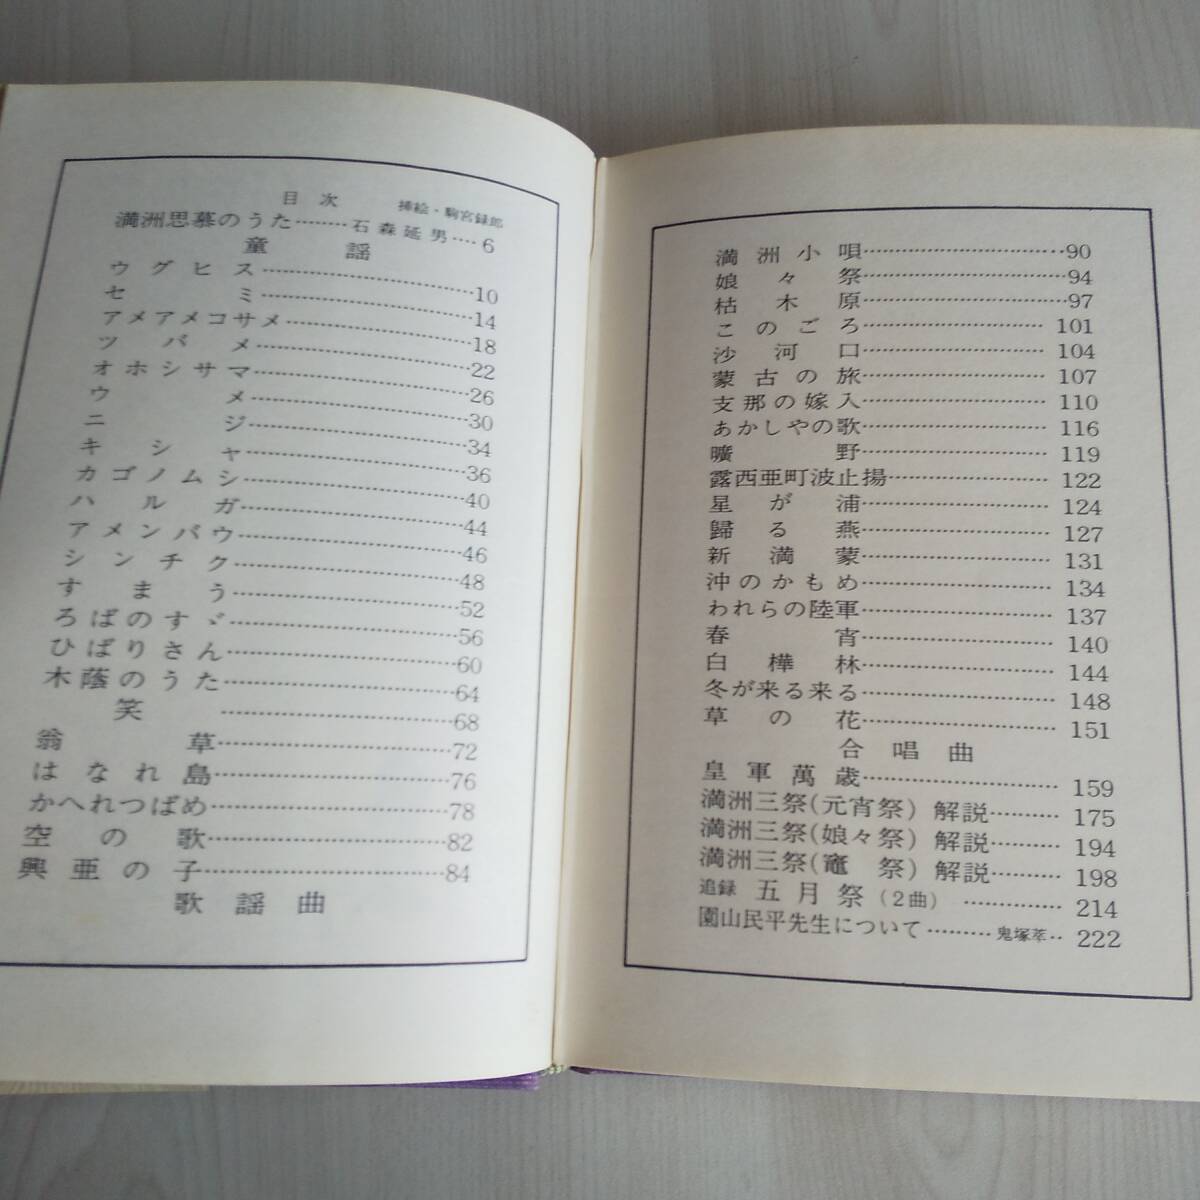 目次　挿絵・駒宮録郎
満洲思慕のうた………石森延男‥‥6
童謡
ウグヒス……10
セミ……14
アメアメコサメ……18
ツバメ……22
オホシサマ……26
ウメ……30
ニジ……34
キシャ……36
カゴノムシ……40
ハルガ……44
アメンバウ……46
シンチク……48
すまう……52
ろばのすゞ……56
ひばりさん……60
木蔭のうた……64
笑……68
翁草……72
はなれ島……76
かへれつばめ……78
空の歌……82
興亜の子……84
歌謡曲
満洲小唄……90
娘々祭……94
枯木原……97
このごろ……101
沙河口……104
蒙古の旅……107
支那の嫁入……110
あかしやの歌……116
曠野……119
露西亜町波止揚……122
星が浦……124
歸る燕……127
新満蒙……131
沖のかもめ……134
われらの陸軍……137
春宵……140
白樺林……144
冬が来る来る……148
草の花……151
合唱曲
皇軍萬歳……159
満洲三祭(元宵祭)解説……175
満洲三祭(娘々祭)解説……194
満洲三祭(竈祭)解説……198
追録 五月祭(2曲)……214
園山民平先生について………鬼塚萃‥222